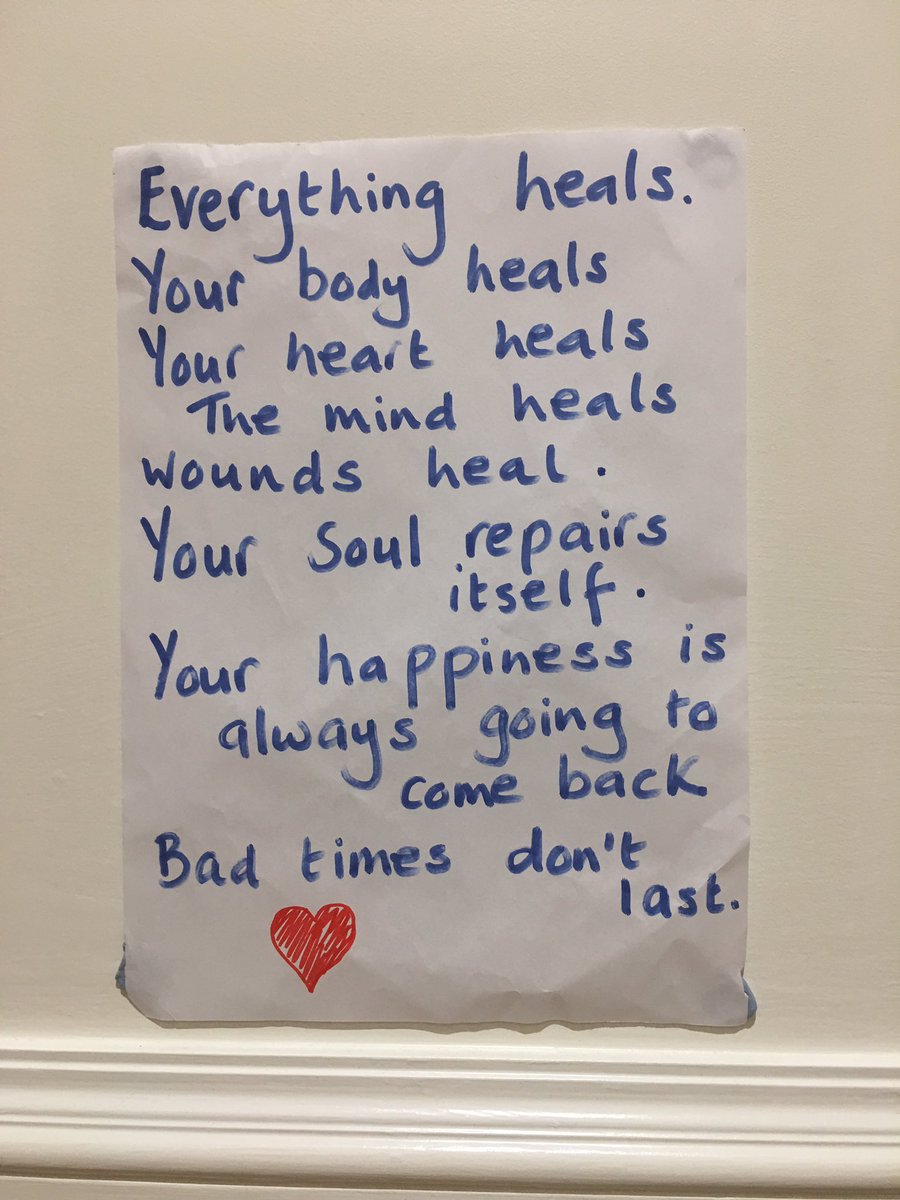 Everything heals.
Your body heals
Your heart heals
The mind heals
wounds heal.
Your soul repairs
itself.
Your happiness is
always going to
come back
Bad times don't
last.